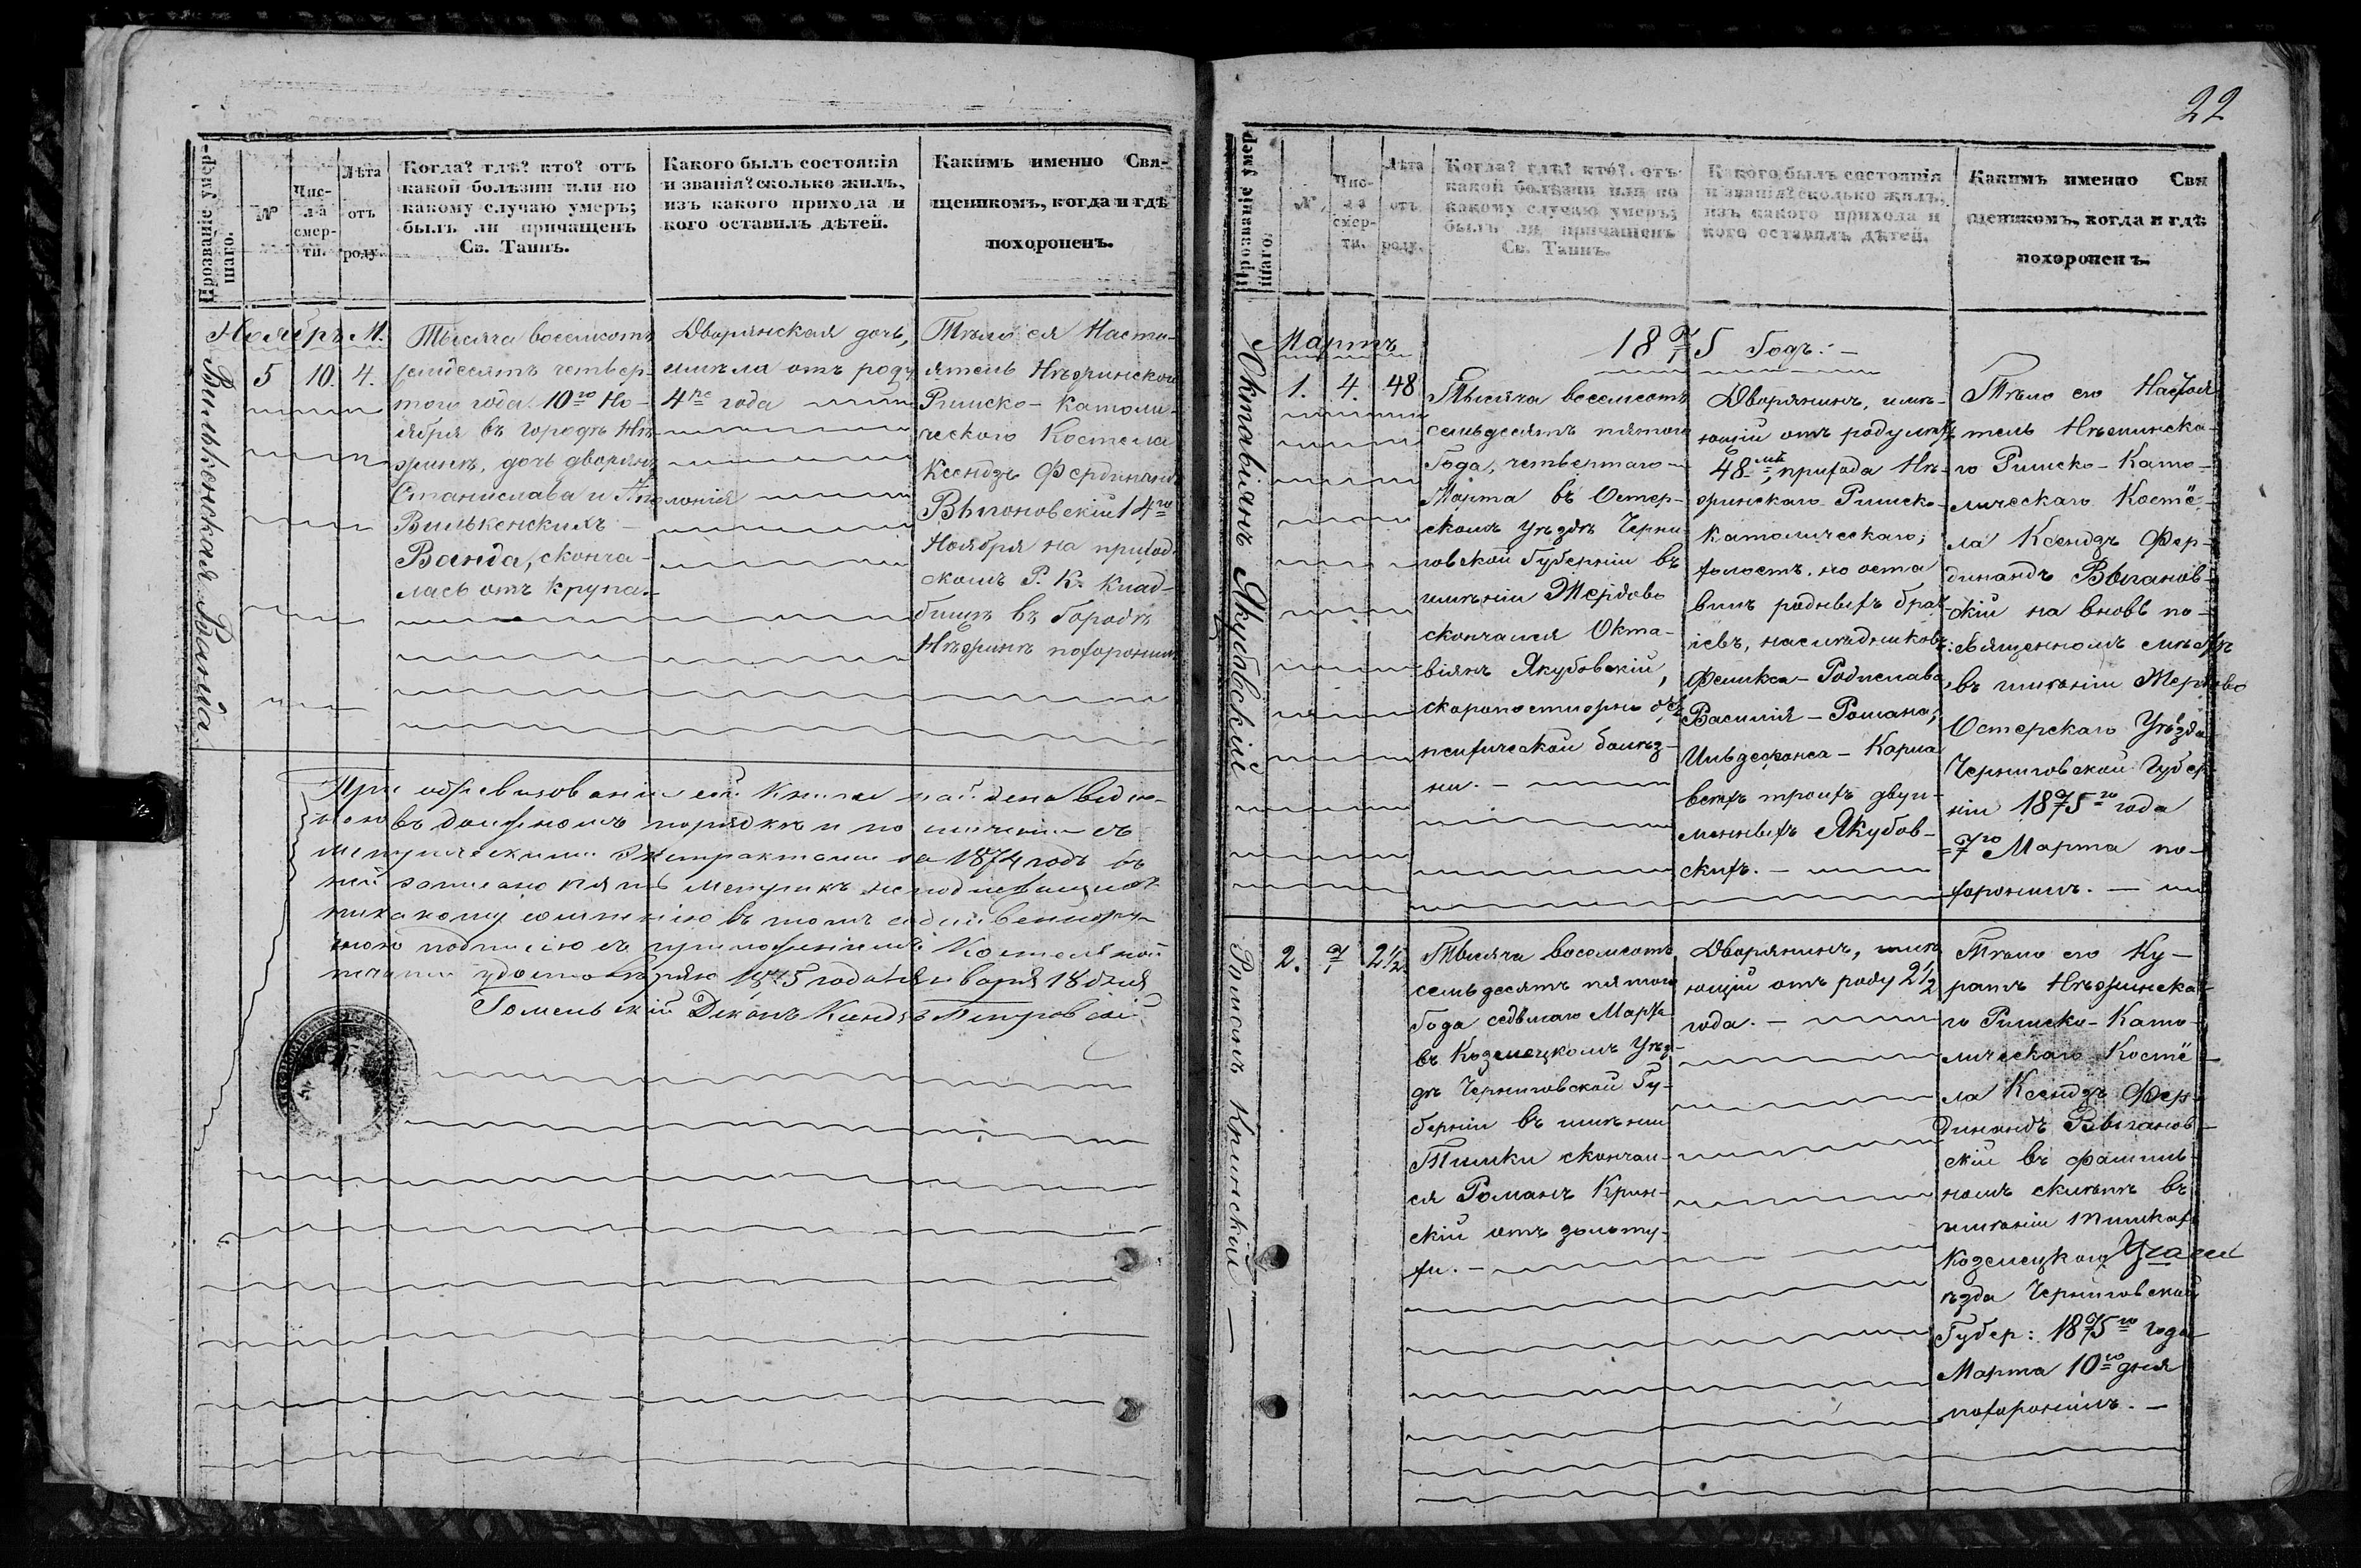 22
Прозваніе умер-
шаго.
№
Чис-
ла
смер-
ти.
Лѣта
отъ
роду.
Когда? гдѣ? кто? отъ
какой болѣзни или по
какому случаю умеръ;
былъ ли причащенъ
Св. Таинъ.
Какого былъ состоянія
и званія? сколько жилъ,
изъ какого прихода и
кого оставилъ дѣтей.
Какимъ именно Свя-
щенникомъ, когда и гдѣ
похороненъ.
Ноябрь М.
Вилькенская Ванда
5 10. 4.
Тысяча восемсотъ
семдесятъ четвер-
того года 10го Но-
ября въ городѣ Нѣ-
жинѣ, дочь дворянъ
Станислава и Аполоніи
Вилькенскихъ
Ванда, сконча-
лась отъ крупа.
Дворянская дочь,
имѣла отъ роду
4ре года
Тѣло ея Насто-
ятель Нѣжинского
Римско-Католи-
ческого Костела
Ксендзъ Фердинандъ
Выгоновскій 14го
Ноября на приход-
скомъ Р. К. Клад-
бищѣ въ Городѣ
Нѣжинѣ похоронилъ
При обревизованіи сей книги найдена ведено-
ною въ должномъ порядкѣ и по сличеніи съ
метрическими Экстрактами за 1874 годъ въ
ней записано пять Метрикъ неподлежащихъ
никакому сомнѣнію въ томъ собственноруч-
ною подписью съ приложеніемъ Костельной
печати удостовѣряю 1875 года Января 18 дня
Гомельскій Деканъ Ксендзъ Петровскій
Прозваніе умер-
шаго.
№
Чис-
ла
смер-
ти.
Лѣта
отъ
роду.
Когда? гдѣ? кто? отъ
какой болѣзни или по
какому случаю умеръ;
былъ ли причащенъ
Св. Таинъ.
Какого былъ состоянія
и званія? сколько жилъ,
изъ какого прихода и
кого оставилъ дѣтей.
Какимъ именно Свя
щенникомъ, когда и гдѣ
похороненъ.
Мартъ
1875 Годъ.
Октавіянъ Якубовскій
1. 4. 48
Тысяча восемсотъ
семьдесятъ пятого
Года, четвертаго
Марта въ Остер-
скомъ уѣздѣ Черни-
говской Губерніи въ
имѣніи Жердово
скончался Окта-
віянъ Якубовскій,
скоропостижно
болѣз-
ни.
Дворянинъ, имѣ-
ющій отъ роду лѣтъ
48мь, прихода Нѣ-
жинскаго Римско-
Католическаго;
холостъ, но оста
вилъ родныхъ брат-
іевъ, наслѣдниковъ:
Феликса-Родислава,
Василія-Романа,
Ильдефонса-Карла
всѣхъ троихъ двуи-
менныхъ Якубов-
скихъ.
Тѣло его Настоя
тель Нѣжинска-
го Римско-Като-
лическаго Костё-
ла Ксендзъ Фер-
динандъ Выганов-
скій на вновь по-
священномъ мѣстѣ
въ имѣніи Жердово
Остерскаго Уѣзда
Черниговской Губер
ніи 1875го года
7го Марта по-
хоронилъ.
Романъ Кринскій
2. 7 2½
Тысяча восемсотъ
семьдесятъ пятого
Года седьмаго Марта
въ Козелецкомъ Уѣз-
дѣ Черниговской Гу-
берніи въ имѣніи
Пишки скончал-
ся Романъ Крин-
скій отъ золоту-
хи.
Дворянинъ, имѣ
ющій отъ роду 2½
года.
Тѣло его Ку-
ратъ Нѣжинска-
го Римско-Като-
лическаго Костё-
ла Ксендзъ Фер-
динандъ Выганов-
скій въ фамиль-
номъ склепѣ въ
имѣніи Пишкахъ
Козелецкого
ѣзда Черниговской
Губер: 1875го года
Марта 10го дня
похоронилъ.